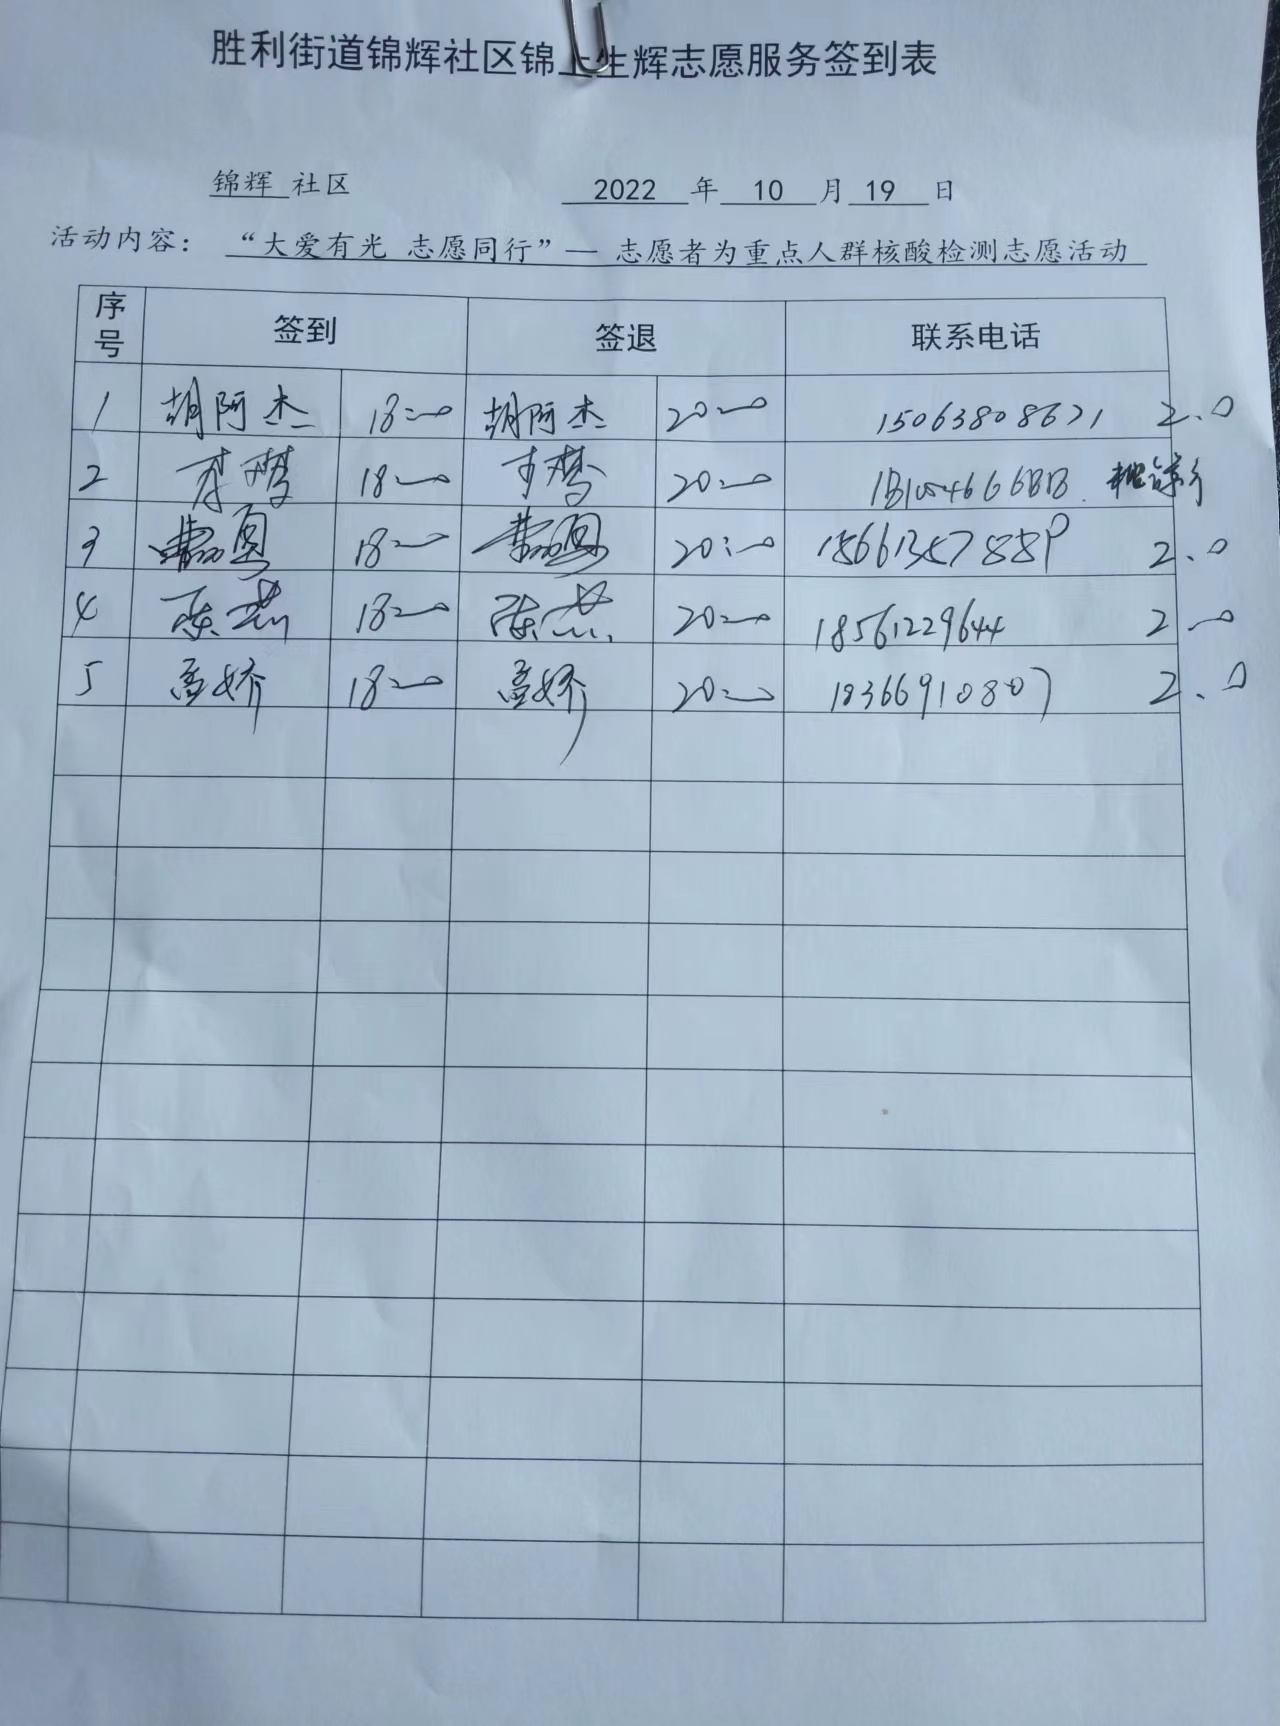 胜利街道锦辉社区锦上生辉志愿服务签到表
锦辉 社区 2022 年 10 月 19 日
活动内容： “大爱有光 志愿同行”— 志愿者为重点人群核酸检测志愿活动
序号 签到 签退 联系电话
1 胡阿杰 18:00 胡阿杰 20:00 15063808671 2.0
2 李梦 18:00 李梦 20:00
3 18:00 20:00 2.0
4 陈燕 18:00 陈燕 20:00 18561229644 2.0
5 高娇 18:00 高娇 20:00 18366910807 2.0